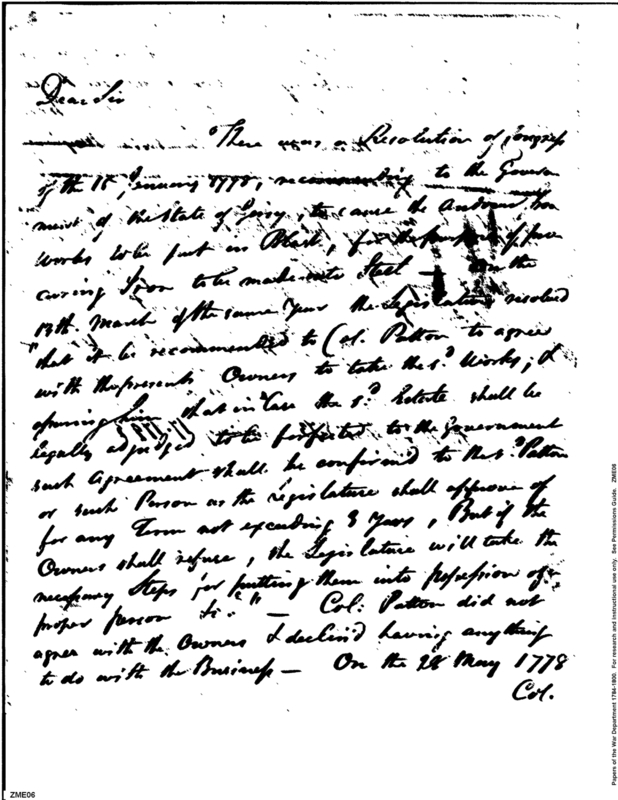 Dear Sir
There was a Resolution of Congress
of the 15 January 1778, recommending to the Govern
ment of the State of Jersey, to cause the Andover Iron
Works to be put in Blast, for the purpose of pro
curing Iron to be made into Steel — on the
13th. March of the same Year the Legislature resolved
"that it be recommended to Col. Patton to agree
with the present Owners to take the sd. Works; &
assuring him that in Case the sd. Estate shall be
legally adjudged to be forfeited to the Government
such Agreement shall be confirmed to the sd. Patton
or such Person as the Legislature shall approve of
for any Term not exceeding 3 Years, But if the
Owners shall refuse, the Legislature will take the
necessary Steps for putting them into possession of a
proper person &c." — Col: Patton did not
agree with the Owners & declin'd having anything
to do with the Business — On the 28 May 1778
Col.
ZME06
Papers of the War Department 1784-1800. For research and instructional use only. See Permissions Guide. ZME06